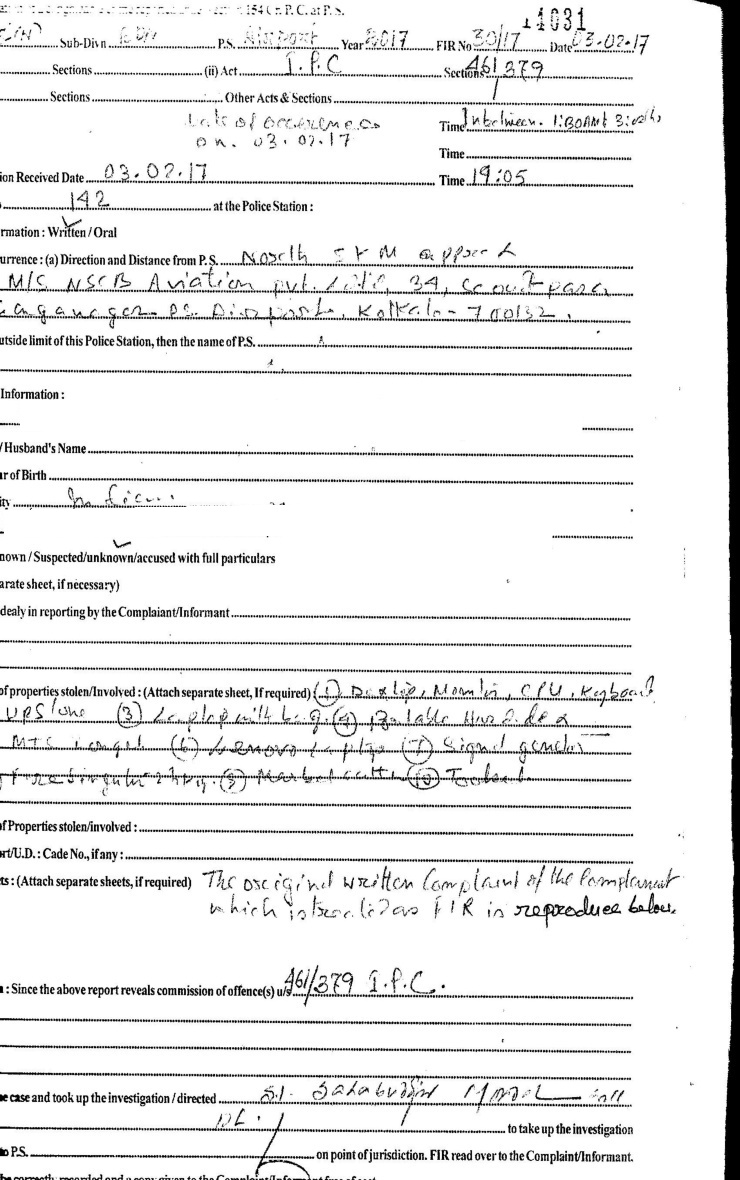 154 Cr. P.C. at P.S.
11031
Sub-Divn P.S. Airport Year 2017 FIR No 30/17 Date 03.02.17
Sections (ii) Act I.P.C Sections 461/379
Sections Other Acts & Sections
Date of occurrence
on. 03.02.17
Time In between. 1:30AM &
Time
ion Received Date 03.02.17 Time 19:05
142 at the Police Station :
rmation : Written / Oral
urrence : (a) Direction and Distance from P.S. North
M/S NSCB Aviation pvt. 34,
P.S. Airport, Kolkata - 700132.
utside limit of this Police Station, then the name of P.S.
Information :
/ Husband's Name
ar of Birth
ity Indian
nown / Suspected/unknown/accused with full particulars
arate sheet, if necessary)
dealy in reporting by the Complaiant/Informant
of properties stolen/Involved : (Attach separate sheet, If required) (1) Monitor, CPU, Keyboard
UPS/one (3) Laptop with bag. (4) Hard
MTS (6) Lenovo Laptop (7) Signal
(9) (10)
of Properties stolen/involved :
ort/U.D. : Cade No., if any :
ts : (Attach separate sheets, if required) The original written Complaint of the Complainant
which is treated as FIR is reproduce below.
: Since the above report reveals commission of offence(s) u/s 461/379 I.P.C.
e case and took up the investigation / directed S.I. Sahabuddin
to take up the investigation
to P.S. on point of jurisdiction. FIR read over to the Complaint/Informant.
be correctly recorded and a copy given to the Complaint/Informant free of cost